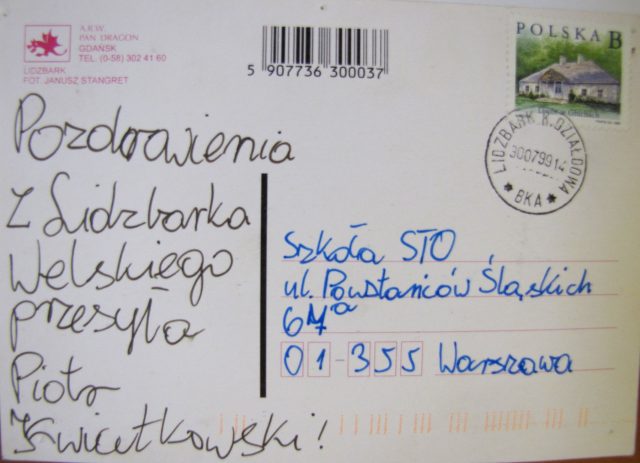 A.R.W.
PAN DRAGON
GDAŃSK
TEL. (0-58) 302 41 60
LIDZBARK
FOT. JANUSZ STANGRET
5 907736 300037
POLSKA B
LIDZBARK K. DZIAŁDOWA
30079914
* BKA *
Pozdrowienia
z Lidzbarka
Welskiego
przesyła
Piotr
Kwiatkowski!
Szkoła STO
ul. Powstańców Śląskich
67a
01-355 Warszawa